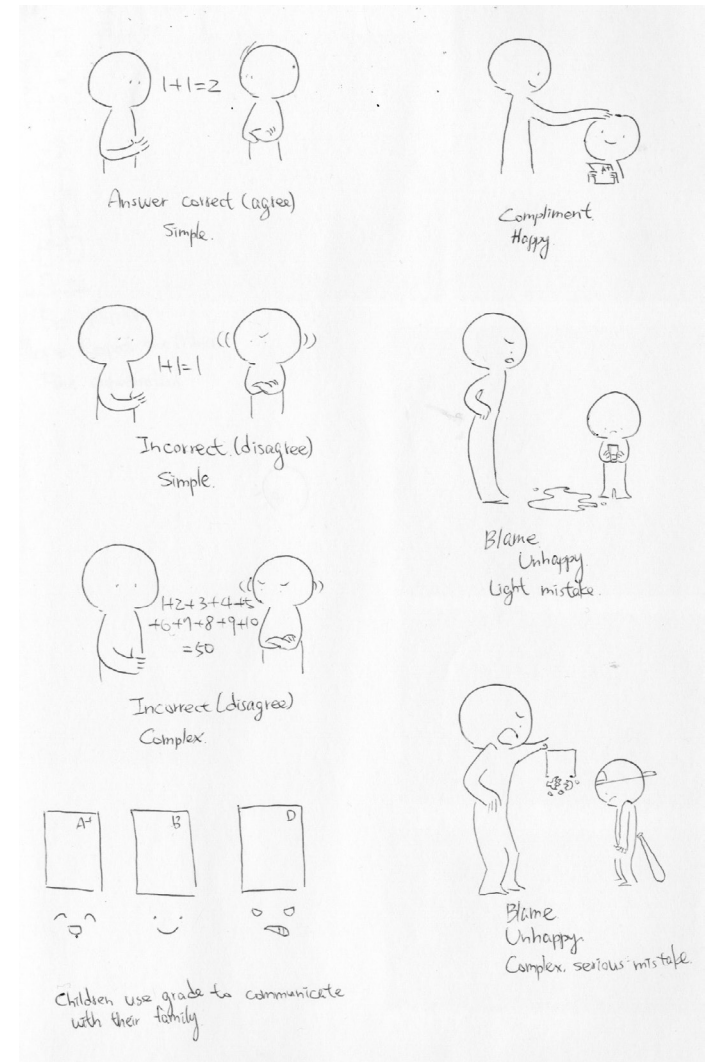 1+1=2
Answer correct (agree)
Simple.
1+1=1
Incorrect (disagree)
Simple.
1+2+3+4+5
+6+7+8+9+10
=50
Incorrect (disagree)
Complex.
A+
B
D
Children use grade to communicate
with their family
A+
Compliment
Happy
Blame
Unhappy
Light mistake.
Blame
Unhappy
Complex, serious mistake.